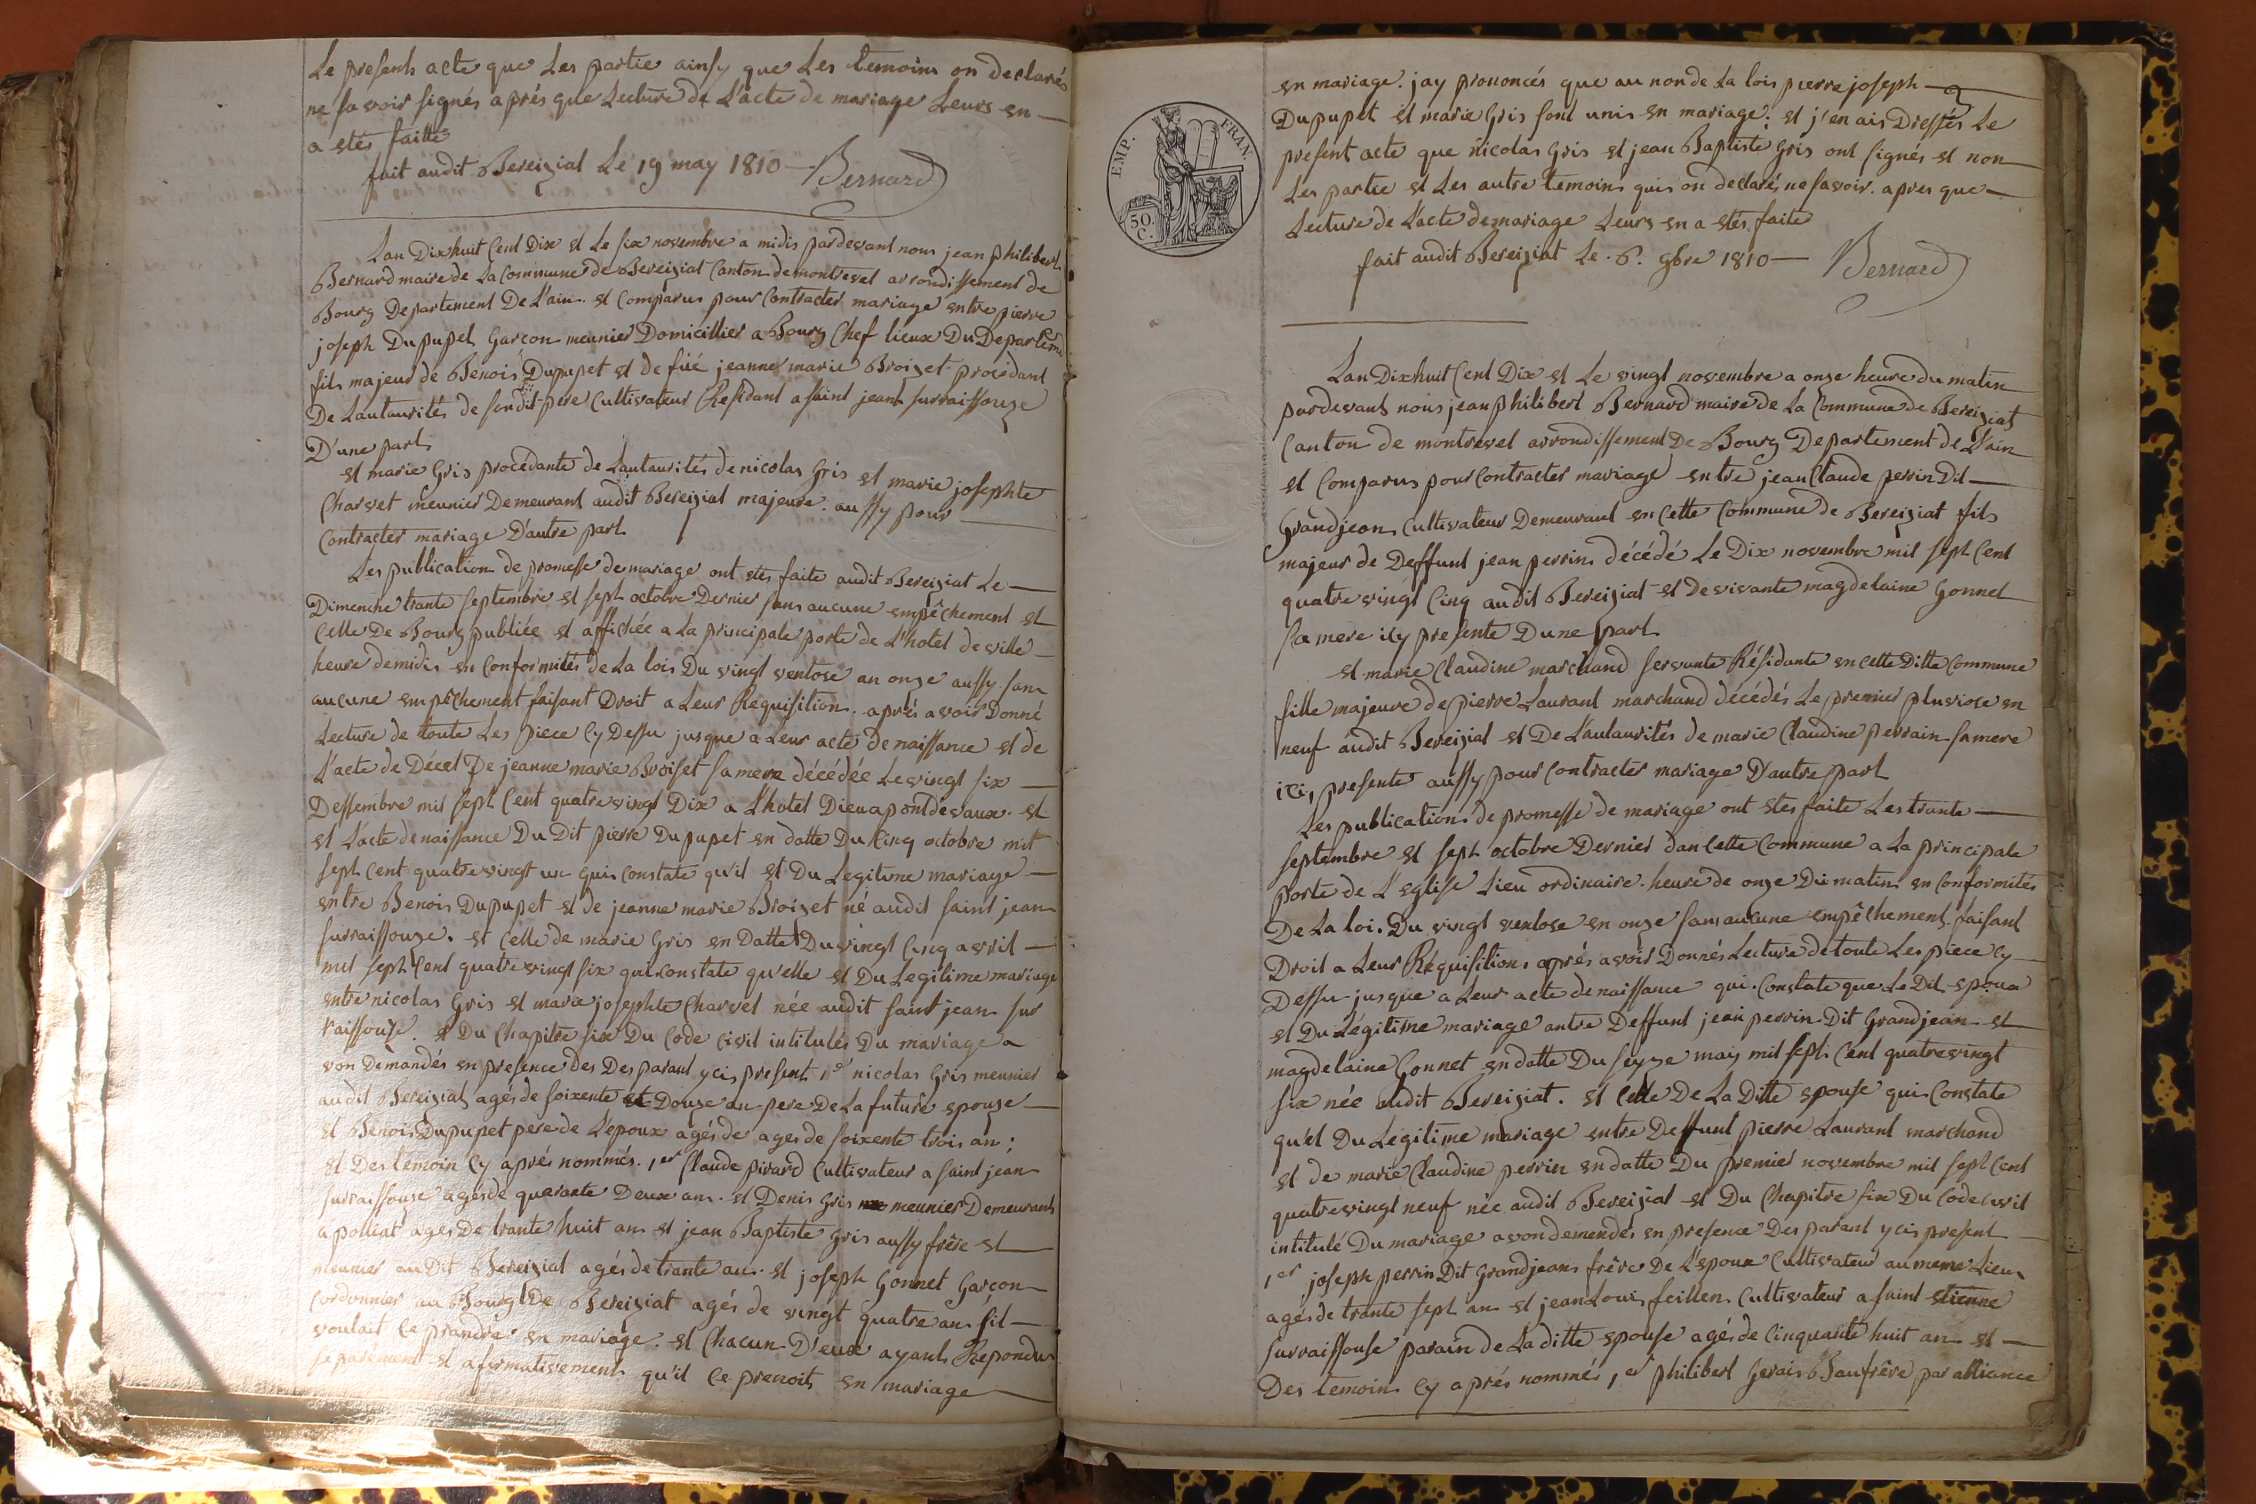 Le present acte que Les partie ainsy que Les temoins on declarés
ne savoir signés aprés que Lecture de L'acte de mariage Leurs en
a etés faitte
fait audit Bereiziat Le 19 may 1810 Bernard
Lan Dixhuit Cent Dix et Le six novembre a midis pardevant nous jean philibert
Bernard maire de La Commune de Bereiziat Canton de montrevel arrondissement de
Bourg Departement De L'ain. et Comparus pour Contracter mariage entre pierre
joseph Dupupet Garcon meunier Domicillier a Bourg Chef lieux Du Departement
fils majeur de Benois Dupupet et de fué jeanne marie Broizet procédant
De Lautaurités de sondit pere Cultivateur Residant a saint jean surraissouze
D'une part
et marie Gris procédante de Lautaurités de nicolas Gris et marie josephte
Charvet meunier Demeurant audit Bereiziat majeure. aussy pour
Contracter mariage D'autre part
Les publication de promesse de mariage ont etes faite audit Bereiziat Le
Dimenche trante septembre et sept octobre Dernier sans aucune empêchement et
Celle De Bourg publiée et affichée a La principale porte de L'hotel de ville
heure de midis en Conformités de La lois Du vingt ventose an onze aussy sans
aucune empêchement faisant Droit a Leur Requisition. aprés avoir Donné
Lecture de toute Les piece Cy Dessu jusque a Leur acte de naissance et de
L'acte de Décet De jeanne marie Broiset sa mere décédée Le vingt six
Dessembre mil sept Cent quatre vingt Dix a L'hotel Dieu a pontdevaux. et
et L'acte de naissance Du Dit pierre Dupupet en datte Du Cinq octobre mil
sept Cent quatre vingt un qui Constate qu'il et Du Legitime mariage
entre Benois Dupupet et de jeanne marie Broizet né audit saint jean
surraissouze. et Celle de marie Gris en Datte Du vingt Cinq avril
mil sept Cent quatre vingt six qui Constate qu'elle et Du Legitime mariage
entre nicolas Gris et marie josephte Charvet née audit saint jean sur
raissouze. et Du Chapitre six Du Code Civil intitulés Du mariage a
von Demandés en presence des Des parant yci present 1e nicolas Gris meunier
audit Bereiziat agés de soixente et Douze an pere De La future epouze
et Benois Dupupet pere de L'epoux agés de ages de soixente trois an;
et Des temoin Cy aprés nommés. 1er Claude pirard Cultivateur a saint jean
surraissouze agés de quarante Deux an. et Denis Gris meunier Demeurant
a polliat agés De trante huit an et jean Baptiste Gris aussy frère et
meunier audit Bereiziat agés de trante an. et joseph Gonnet Garçon
Cordonnier au Bourg De Bereiziat agés de vingt quatre an sil
voulait Ce prandre en mariage. et Chacun D'eux ayant Repondu
separément et afirmativement qu'il Ce prenoit en mariage
en mariage. jay prononcés que au non de La lois pierre joseph
Dupupet et marie Gris sont unis en mariage; et j'en ais Dressés Le
present acte que nicolas Gris et jean Baptiste Gris ont signés et non
Les partie et Les autre temoins quis on declarés ne savoir. apres que
Lecture de L'acte de mariage Leurs en a etés faite
fait audit Bereiziat Le. 6. 9bre 1810 Bernard
EMP. FRAN.
50.
C.
Lan Dixhuit Cent Dix et Le vingt novembre a onze heure du matin
pardevant nous jean philibert Bernard maire de La Commune de Bereiziat
Canton de montrevel arrondissement De Bourg Departement de L'ain
et Comparus pour Contracter mariage entre jean Claude perrin Dit
Grandjean Cultivateur Demeurant en Cette Commune de Bereiziat fils
majeur de Deffunt jean perrin décédé Le Dix novembre mil sept Cent
quatre vingt Cinq audit Bereiziat et de vivante magdelaine Gonnet
sa mere icy presente D'une part
et marie Claudine marchand servante Résidante en cette Ditte Commune
fille majeure de pierre Laurant marchand décédés Le premier pluviose en
neuf audit Bereiziat et De L'autaurités de marie Claudine perrain sa mere
ici, presente aussy pour Contracter mariage D'autre part
Les publication de promesse de mariage ont etes faite Les trante
septembre et sept octobre Dernier dan Cette Commune a La principale
porte de L'eglise Lieu ordinaire heure de onze Du matin en Conformités
De La loi. Du vingt ventose en onze sans aucune empêchement. faisant
Droit a Leur Requisition aprés avoir Donnés Lecture de toute Les piece Cy
Dessu jusque a Leur acte de naissance qui. Constate que Le Dit epoux
et Du Légitime mariage antre Deffunt jean perrin Dit Grandjean et
magdelaine Gonnet en datte Du seyze may mil sept Cent quatre vingt
six née audit Bereiziat. et Celle De La Ditte epouse qui Constate
qu'el Du Legitime mariage entre Deffunt pierre Laurant marchand
et de marie Claudine perrin en datte Du premier novembre mil sept Cent
quatre vingt neuf née audit Bereiziat et Du Chapitre six Du Code Civil
intitulé Du mariage avon demendés en presence Des parant yci present
1er joseph perrin Dit Grandjean frère De L'epoux Cultivateur au meme Lieu
agés de trante sept an et jean Loui feillen Cultivateur a saint etienne
surraissouse parain de La ditte epouse agés de Cinquante huit an et
Des temoin Cy aprés nommés 1er philibert Gerais Beaufrère par alliance